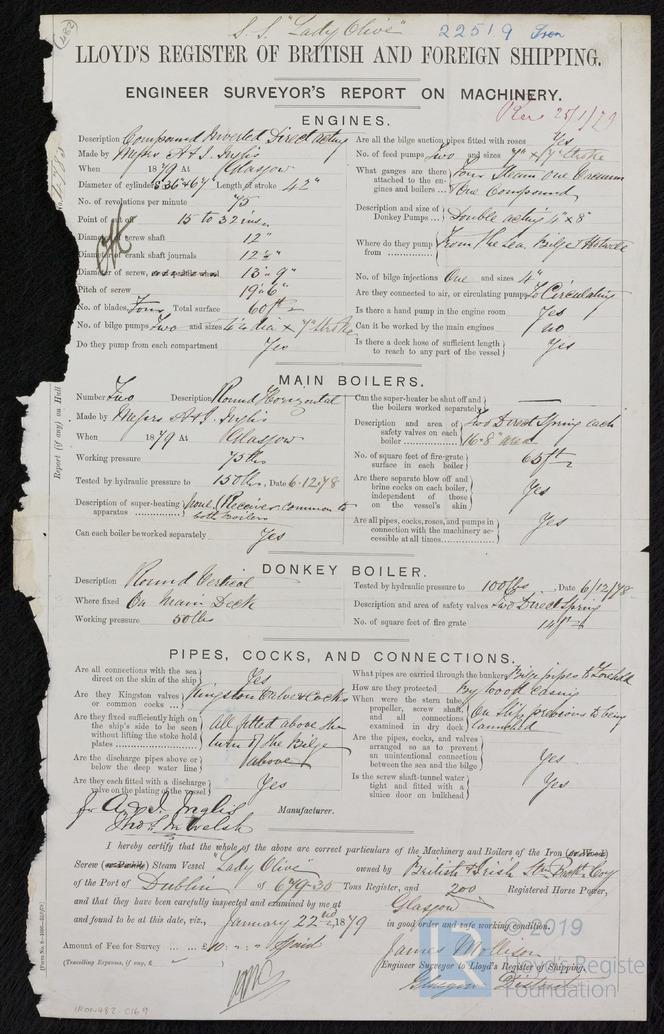 482
S. S. "Lady Olive"
22519 Iron
LLOYD'S REGISTER OF BRITISH AND FOREIGN SHIPPING.
ENGINEER SURVEYOR'S REPORT ON MACHINERY.
Rec 25/1/79
ENGINES.
Description Compound Inverted Direct acting
Made by Messrs A & J. Inglis
When 1879 At Glasgow
Diameter of cylinders 36" & 67 Length of stroke 42"
No. of revolutions per minute 75
Point of cut off 15 to 32 ins
Diameter of screw shaft 12"
Diameter of crank shaft journals
Diameter of screw, 13'-9"
Pitch of screw 19'-6"
No. of blades Four Total surface 60 ft
No. of bilge pumps Two and sizes dia × 7" Stroke
Do they pump from each compartment Yes
Are all the bilge suction pipes fitted with roses Yes
No. of feed pumps Two and sizes Stroke
What gauges are there attached to the engines and boilers ... Four Steam One Vacuum One Compound
Description and size of Donkey Pumps ... Double acting 4" x 8"
Where do they pump from From the Sea, Bilge & Hotwell
No. of bilge injections One and sizes 4"
Are they connected to air, or circulating pumps To Circulating
Is there a hand pump in the engine room Yes
Can it be worked by the main engines No
Is there a deck hose of sufficient length to reach to any part of the vessel Yes
Report (if any) on Hull
MAIN BOILERS.
Number Two Description Round Horizontal
Made by Messrs A & J. Inglis
When 1879 At Glasgow
Working pressure 75 lbs
Tested by hydraulic pressure to 150 lbs. Date 6.12.78
Description of super-heating apparatus None (Receiver common to both Boilers
Can each boiler be worked separately Yes
Can the super-heater be shut off and the boilers worked separately —
Description and area of safety valves on each boiler Two Direct Spring each 16.8" area
No. of square feet of fire-grate surface in each boiler 65 ft
Are there separate blow off and brine cocks on each boiler, independent of those on the vessel's skin Yes
Are all pipes, cocks, roses, and pumps in connection with the machinery accessible at all times Yes
DONKEY BOILER.
Description Round Vertical
Where fixed On Main Deck
Working pressure 50 lbs
Tested by hydraulic pressure to 100 lbs Date 6/12/78
Description and area of safety valves Two Direct Spring
No. of square feet of fire grate 14 ft
PIPES, COCKS, AND CONNECTIONS.
Are all connections with the sea direct on the skin of the ship Yes
Are they Kingston valves or common cocks ... Kingston Valves & Cocks
Are they fixed sufficiently high on the ship's side to be seen without lifting the stoke hold plates All fitted above the turn of the Bilge
Are the discharge pipes above or below the deep water line above
Are they each fitted with a discharge valve on the plating of the vessel Yes
What pipes are carried through the bunkers Bilge pipes to Forehold
How are they protected By Wood Casing
When were the stern tube, propeller, screw shaft, and all connections examined in dry dock On Slip previous to being launched
Are the pipes, cocks, and valves arranged so as to prevent an unintentional connection between the sea and the bilge Yes
Is the screw shaft-tunnel water tight and fitted with a sluice door on bulkhead Yes
for A. & J. Inglis Manufacturer.
I hereby certify that the whole of the above are correct particulars of the Machinery and Boilers of the Iron (or Wood)
Screw (or Paddle) Steam Vessel "Lady Olive" owned by British & Irish Stm Packt Coy
of the Port of Dublin of 679-30 Tons Register, and 200 Registered Horse Power,
and that they have been carefully inspected and examined by me at Glasgow
and found to be at this date, viz., January 22nd 1879 in good order and safe working condition.
Amount of Fee for Survey ... £10 : " : " paid
James Mollison
Engineer Surveyor to Lloyd's Register of Shipping.
(Travelling Expenses, if any, £
Glasgow District
IRON482-0169
© 2019
Lloyd's Register
Foundation